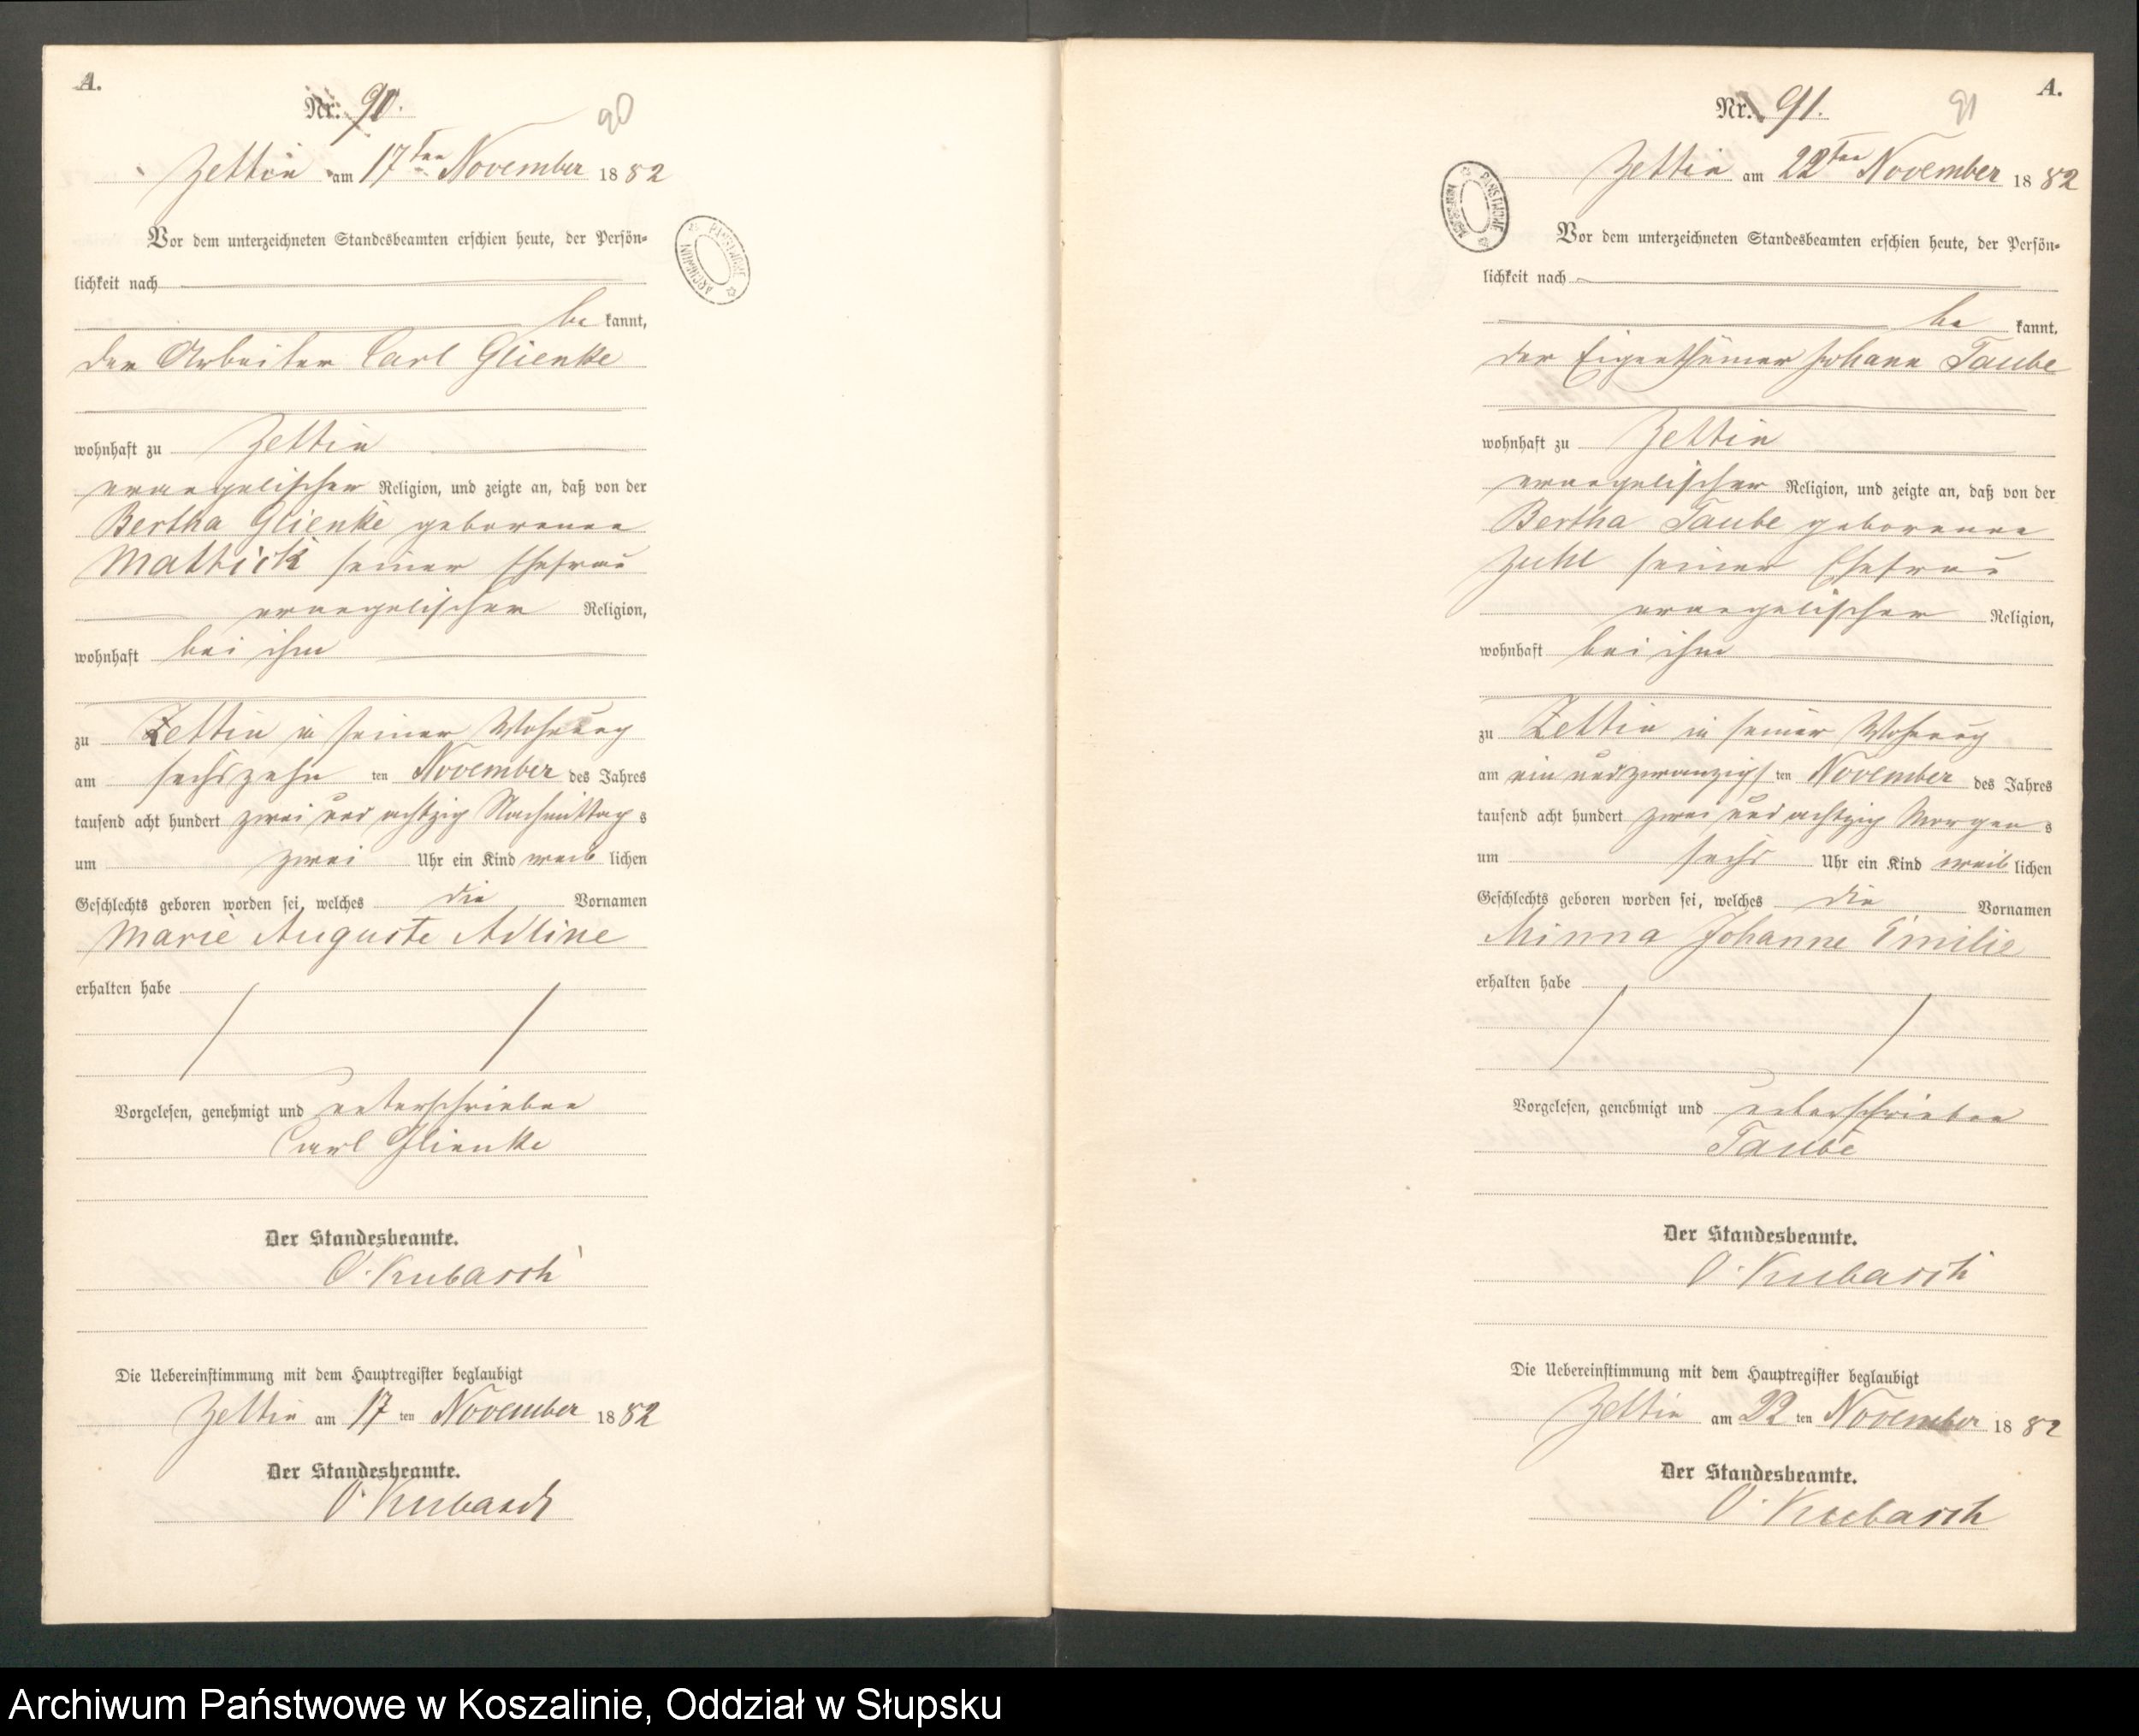 A.
Nr. 90.
90
Zettin am 17ten November 1882
Vor dem unterzeichneten Standesbeamten erschien heute, der Persön-
lichkeit nach
be kannt,
der Arbeiter Carl Glienke
wohnhaft zu Zettin
evangelischer Religion, und zeigte an, daß von der
Bertha Glienke geborenen
Mattick seiner Ehefrau
evangelischer Religion,
wohnhaft bei ihm
zu Zettin in seiner Wohnung
am sechszehn ten November des Jahres
tausend acht hundert zwei und achtzig Nachmittag s
um zwei Uhr ein Kind weib lichen
Geschlechts geboren worden sei, welches die Vornamen
Marie Auguste
erhalten habe
Vorgelesen, genehmigt und unterschrieben
Carl Glienke
Der Standesbeamte.
O. Kubasch
Die Uebereinstimmung mit dem Hauptregister beglaubigt
Zettin am 17 ten November 1882
Der Standesbeamte.
O. Kubasch
ARCHIWUM PAŃSTWOWE
A.
Nr. 91.
91
Zettin am 22ten November 1882
Vor dem unterzeichneten Standesbeamten erschien heute, der Persön-
lichkeit nach
be kannt,
der Eigenthümer Johann Taube
wohnhaft zu Zettin
evangelischer Religion, und zeigte an, daß von der
Bertha Taube geborenen
Zuhl seiner Ehefrau
evangelischer Religion,
wohnhaft bei ihm
zu Zettin in seiner Wohnung
am ein und zwanzigs ten November des Jahres
tausend acht hundert zwei und achtzig Morgen s
um sechs Uhr ein Kind weib lichen
Geschlechts geboren worden sei, welches die Vornamen
Minna Johanne Emilie
erhalten habe
Vorgelesen, genehmigt und unterschrieben
Taube
Der Standesbeamte.
O. Kubasch
Die Uebereinstimmung mit dem Hauptregister beglaubigt
Zettin am 22 ten November 1882
Der Standesbeamte.
O. Kubasch
ARCHIWUM PAŃSTWOWE
Archiwum Państwowe w Koszalinie, Oddział w Słupsku